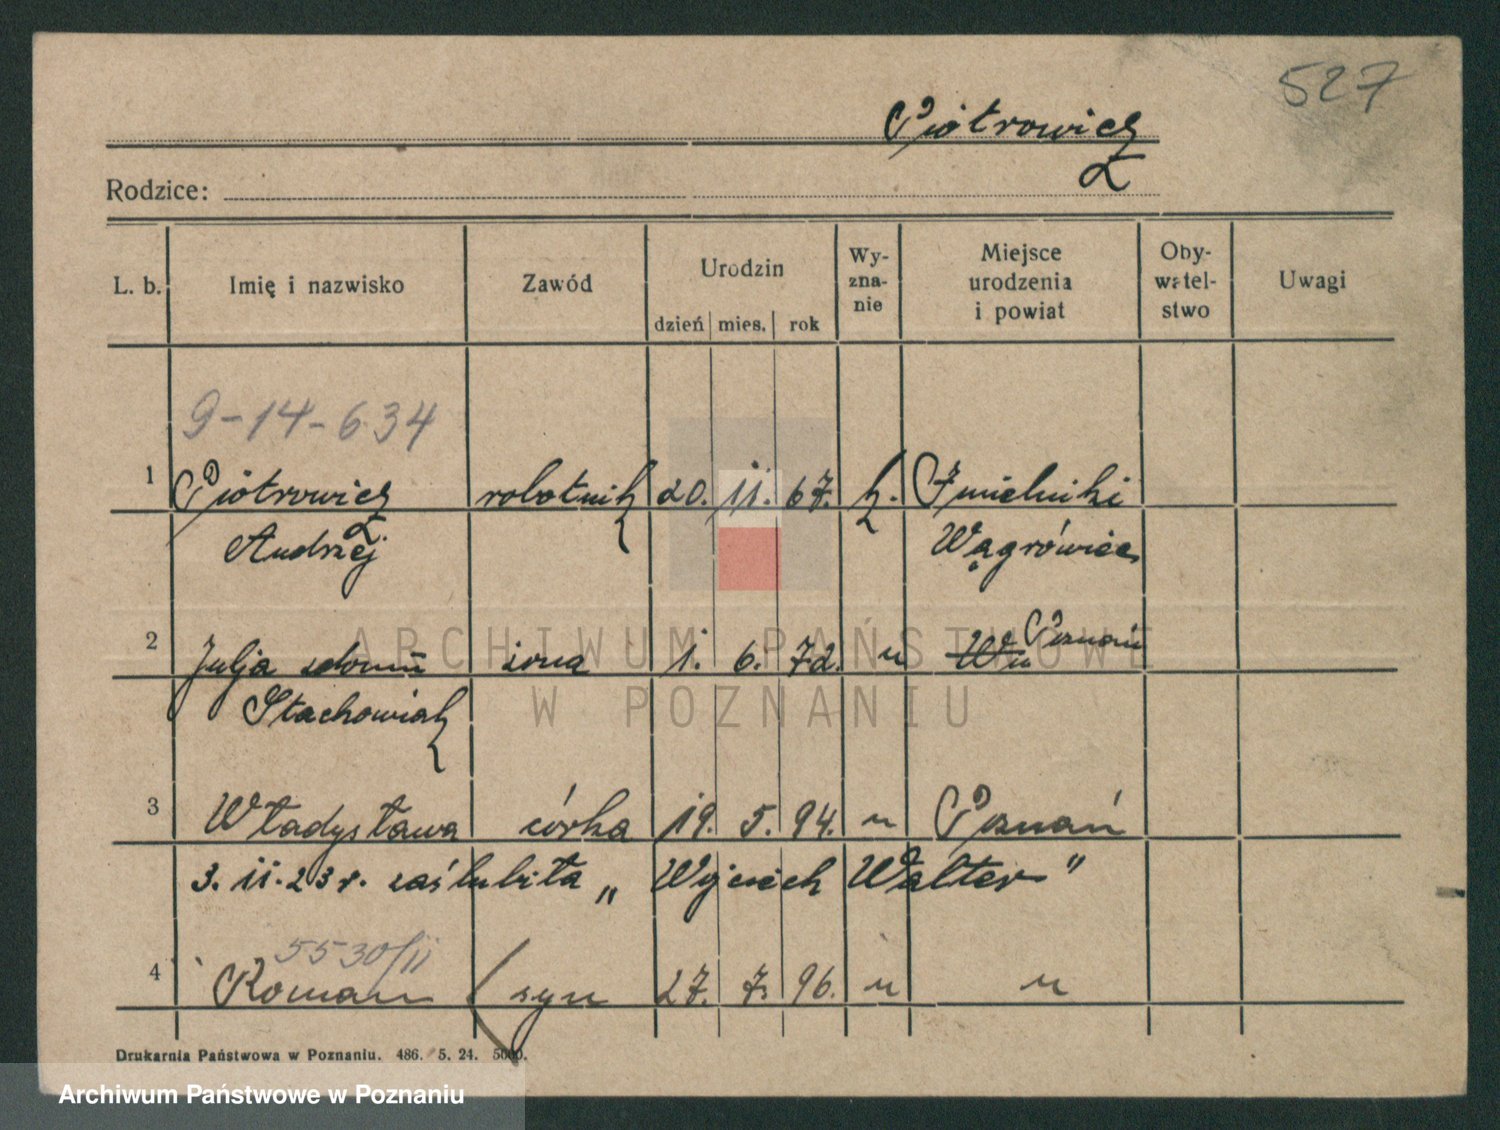 527
Piotrowicz
Rodzice:
L. b. Imię i nazwisko Zawód Urodzin dzień mies. rok Wy-zna-nie Miejsce urodzenia i powiat Oby-watel-stwo Uwagi
9-14-634
1 Piotrowicz robotnik 20. 11. 67. k. Źmielniki
Andrzej Wągrówiec
2 Julja żona 1. 6. 72. " Poznań
Stachowiak
3 Władysława córka 19. 5. 94. " Poznań
3. 11. 23 r. zaślubiła „ Wojciech Walter "
5530/11
4 Roman syn 27. 7. 96. " "
Drukarnia Państwowa w Poznaniu. 486. 5. 24. 5000.
ARCHIWUM PAŃSTWOWE
W POZNANIU
Archiwum Państwowe w Poznaniu